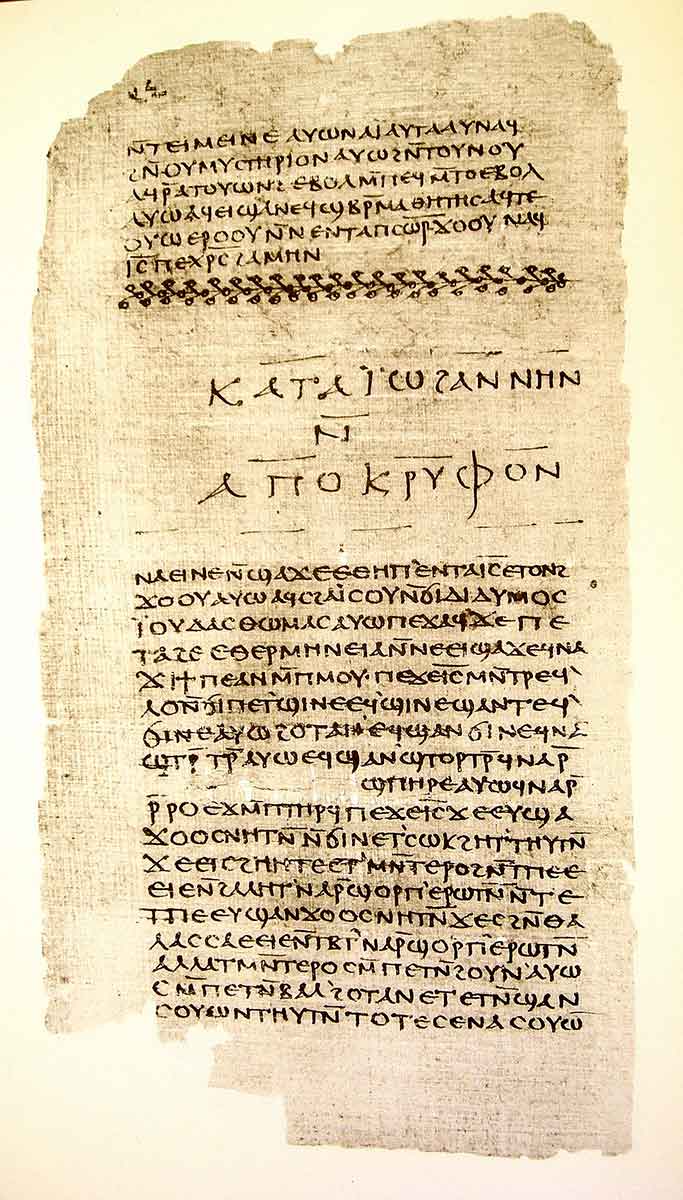 ⲛ̄ⲧⲉⲓⲙⲉⲓⲛⲉ ⲁⲩⲱ ⲛⲁⲓ̈ ⲁⲩⲧⲁⲁⲩ ⲛⲁϥ
ϩⲛ̄ ⲟⲩⲙⲩⲥⲧⲏⲣⲓⲟⲛ ⲁⲩⲱ ϩⲛ̄ ⲧⲟⲩⲛⲟⲩ
ⲁϥⲣ̄ⲁⲧⲟⲩⲱⲛϩ ⲉⲃⲟⲗ ⲙ̄ⲡⲉϥⲙ̄ⲧⲟ ⲉⲃⲟⲗ
ⲁⲩⲱ ⲁϥⲉⲓ ϣⲁ ⲛⲉϥϣⲃⲣ̄ⲙⲁⲑⲏⲧⲏⲥ ⲁϥⲧⲉ
ⲟⲩⲱ ⲉⲣⲟⲟⲩ ⲛ̄ⲛⲉⲛⲧⲁ ⲡⲥⲱ̄ⲣ̄ ϫⲟⲟⲩ ⲛⲁϥ
ⲓ̄ⲥ̄ ⲡⲉⲭ̄ⲣ̄ⲥ̄ ϩⲁⲙⲏⲛ
ⲕⲁⲧⲁ ⲓ̈ⲱϩⲁⲛⲛⲏⲛ
ⲛ̄
ⲁⲡⲟⲕⲣⲩⲫⲟⲛ
ⲛⲁⲉⲓ ⲛⲉ ⲛ̄ϣⲁϫⲉ ⲉⲑⲏⲡ ⲉⲛⲧⲁ ⲓ̄ⲥ̄ ⲉⲧⲟⲛϩ
ϫⲟⲟⲩ ⲁⲩⲱ ⲁϥⲥϩⲁⲓ̈ⲥⲟⲩ ⲛ̄ϭⲓ ⲇⲓⲇⲩⲙⲟⲥ
ⲓ̈ⲟⲩⲇⲁⲥ ⲑⲱⲙⲁⲥ ⲁⲩⲱ ⲡⲉϫⲁϥ ϫⲉ ⲡⲉ
ⲧⲁϩⲉ ⲉⲑⲉⲣⲙⲏⲛⲉⲓⲁ ⲛ̄ⲛⲉⲉⲓϣⲁϫⲉ ϥⲛⲁ
ϫⲓ ϯⲡⲉ ⲁⲛ ⲙ̄ⲡⲙⲟⲩ ⲡⲉϫⲉ ⲓ̄ⲥ̄ ⲙⲛ̄ⲧⲣⲉϥ
ⲗⲟ ⲛ̄ϭⲓ ⲡⲉⲧϣⲓⲛⲉ ⲉϥϣⲓⲛⲉ ϣⲁⲛⲧⲉϥ
ϭⲓⲛⲉ ⲁⲩⲱ ϩⲟⲧⲁⲛ ⲉϥϣⲁⲛϭⲓⲛⲉ ϥⲛⲁ
ϣⲧⲣ̄ⲧⲣ̄ ⲁⲩⲱ ⲉϥϣⲁⲛϣⲧⲟⲣⲧⲣ̄ ϥⲛⲁⲣ̄
ϣⲡⲏⲣⲉ ⲁⲩⲱ ϥⲛⲁⲣ̄
ⲣ̄ⲣⲟ ⲉϫⲙ̄ ⲡⲧⲏⲣϥ ⲡⲉϫⲉ ⲓ̄ⲥ̄ ϫⲉ ⲉⲩϣⲁ
ϫⲟⲟⲥ ⲛⲏⲧⲛ̄ ⲛ̄ϭⲓ ⲛⲉⲧⲥⲱⲕ ϩⲏⲧ ⲧⲏⲩⲧⲛ̄
ϫⲉ ⲉⲓⲥϩⲏⲏⲧⲉ ⲉⲧⲙⲛ̄ⲧⲉⲣⲟ ϩⲛ̄ ⲧⲡⲉ ⲉ
ⲉⲓⲉ ⲛ̄ϩⲁⲗⲏⲧ ⲛⲁⲣ̄ ϣⲟⲣⲡ ⲉⲣⲱⲧⲛ̄ ⲛ̄ⲧⲉ
ⲧⲡⲉ ⲉⲩϣⲁⲛϫⲟⲟⲥ ⲛⲏⲧⲛ̄ ϫⲉ ⲥϩⲛ̄ ⲑⲁ
ⲗⲁⲥⲥⲁ ⲉⲉⲓⲉ ⲛ̄ⲧⲃⲧ ⲛⲁⲣ̄ ϣⲟⲣⲡ ⲉⲣⲱⲧⲛ̄
ⲁⲗⲗⲁ ⲧⲙⲛ̄ⲧⲉⲣⲟ ⲥⲙ̄ⲡⲉⲧⲛ̄ϩⲟⲩⲛ ⲁⲩⲱ
ⲥⲙ̄ⲡⲉⲧⲛ̄ⲃⲁⲗ ϩⲟⲧⲁⲛ ⲉⲧⲉⲧⲛ̄ϣⲁⲛ
ⲥⲟⲩⲱⲛ ⲧⲏⲩⲧⲛ̄ ⲧⲟⲧⲉ ⲥⲉⲛⲁⲥⲟⲩⲱ